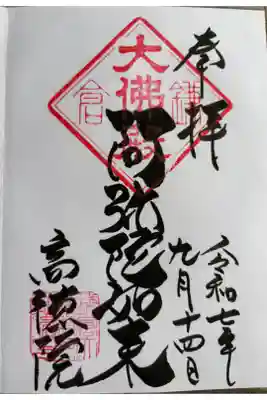 奉拝
令和七年
九月十四日
鎌倉
大佛殿
阿弥陀如来
高徳院